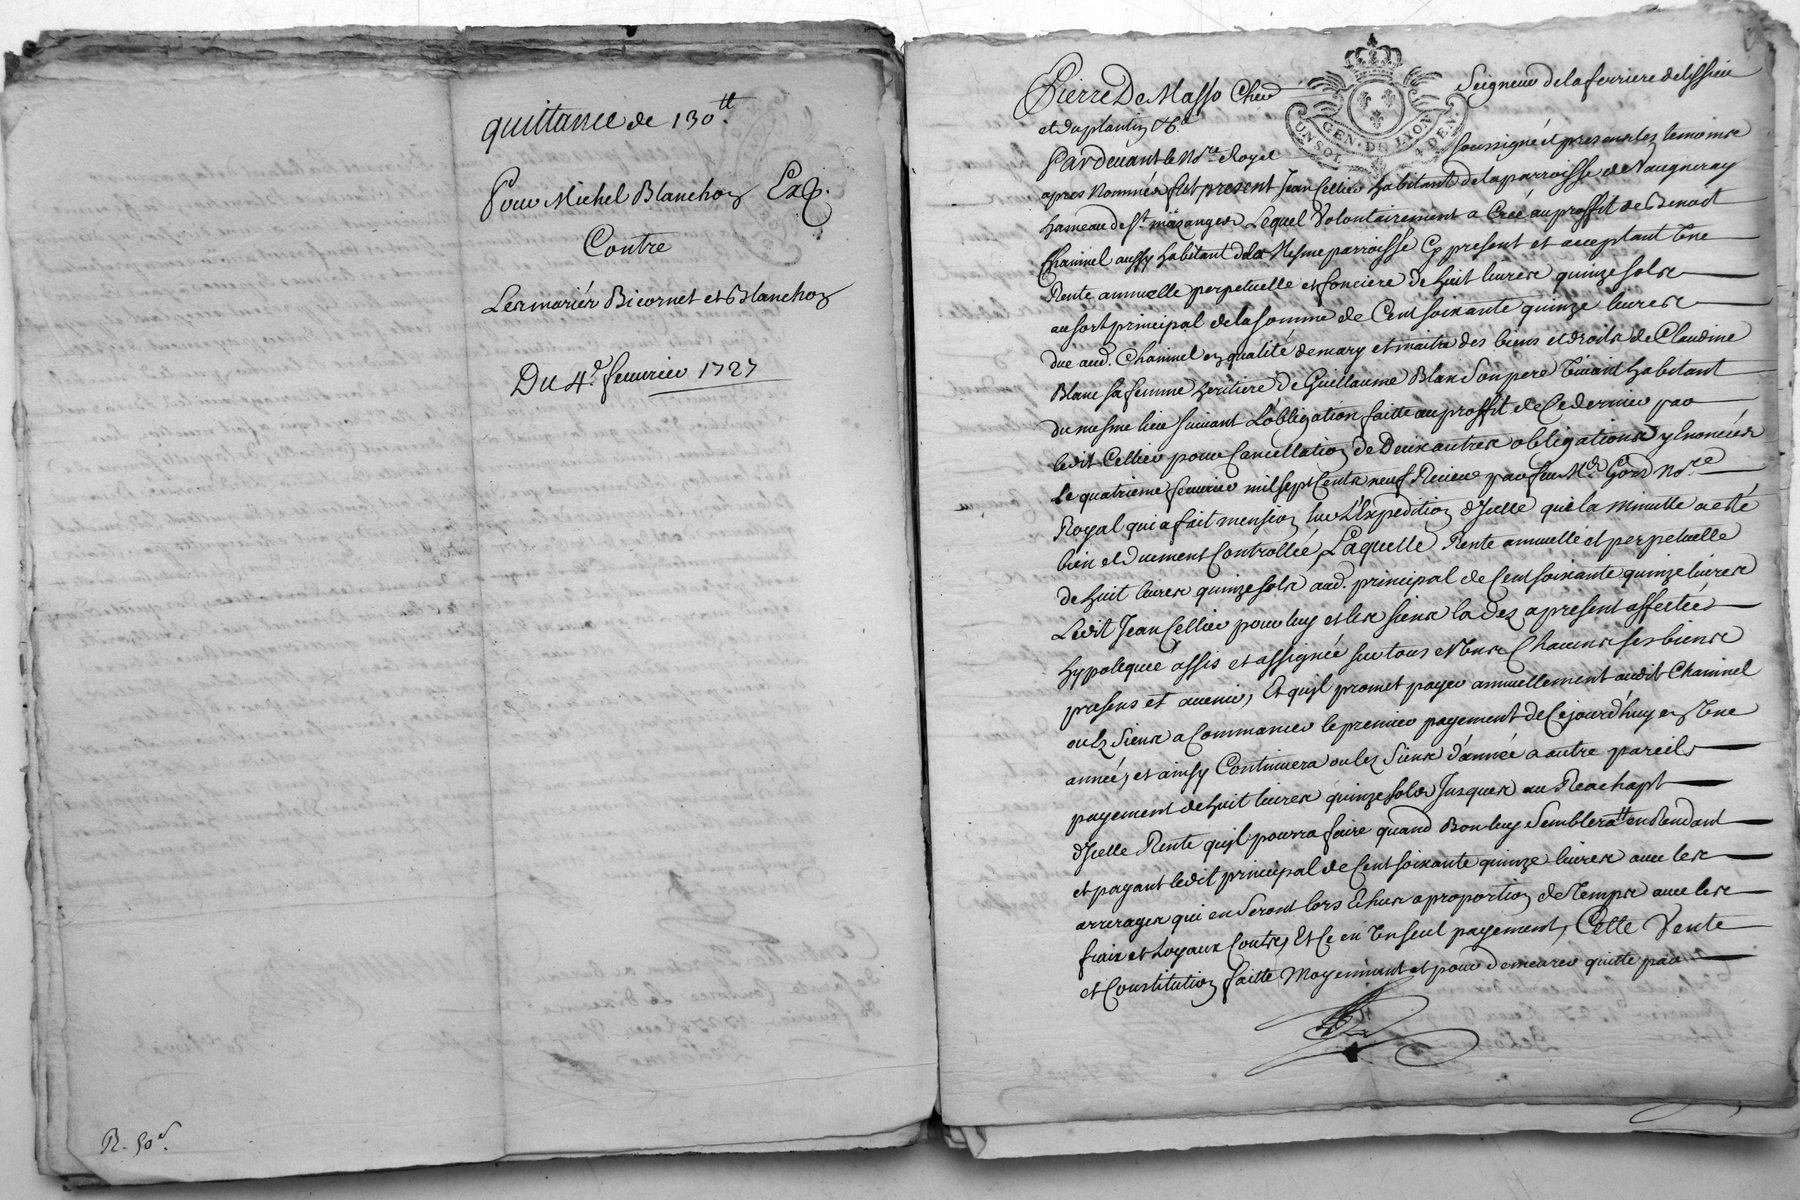 quittance de 130ᵗᵗ.
Pour Michel Blanchon Exp.
Contre
Les mariés Bicornet et Blanchon
Du 4ᵉ. feuurier 1727
R. 50ˢ.
Pierre De Masso Cheu Seigneur de la ferriere de lissieu
et du plantin &ᶜᵃ
UN SOL GEN. DE LYON 4 DEN
Pardeuant le Noʳᵉ Royal soussigné et presens les temoins
apres Nommés fut present Jean Cellier habitant de la parroisse de Vaugneray
hameau de Sᵗ. mazanges Lequel Volontairement a Créé au proffit de Benoist
Chaninel aussy habitant de la Mesme parroisse Cy present et acceptant Une
Rente annuelle perpetuelle et fonciere de huit liures quinze sols
au sort principal de la somme de Cent soixante quinze liures
due aud. Chaninel en qualité de mary et maitre des biens et droits de Claudine
Blanc sa femme heritiere de Guillaume Blan Son pere Viuant habitant
du mesme lieu suiuant L'obligation faitte au proffit de Ce dernier par
ledit Cellier pour Cancellation de Deux autres obligations y Enoncées
Le quatrieme feurier mil sept Cents neuf Receue par feu Mᵉ. Gors Noʳᵉ
Royal qui a fait mension sur L'Expedition d'Icelle que la minutte a esté
bien et duement Controllée, Laquelle Rente annuelle et perpetuelle
de huit liures quinze sols aud. principal de Cent soixante quinze liures
Ledit Jean Cellier pour luy et les siens la dez a present affectée
hypotequée assis et assignée sur tous et Uns Chacuns ses biens
presens et auenir, Et qu'jl promet payer annuellement audit Chaninel
ou lz Siens a Commancer le premier payement de Cejourd'huy en Une
année, et ainsy Continuera ou lez Siens d'année a autre pareils
payement de huit liures quinze sols Jusques au Reachapt
d'Icelle Rente qu'jl pourra faire quand Bon luy Semblera en Rendant
et payant ledit principal de Cent soixante quinze liures auec les
arrerages qui en seront lors Echus a proportion de Temps auec les
frais et loyaux Coutes, Et Ce en Un seul payement, Cette Vente
et Constitution faitte Moyennant et pour demeurer quitte par